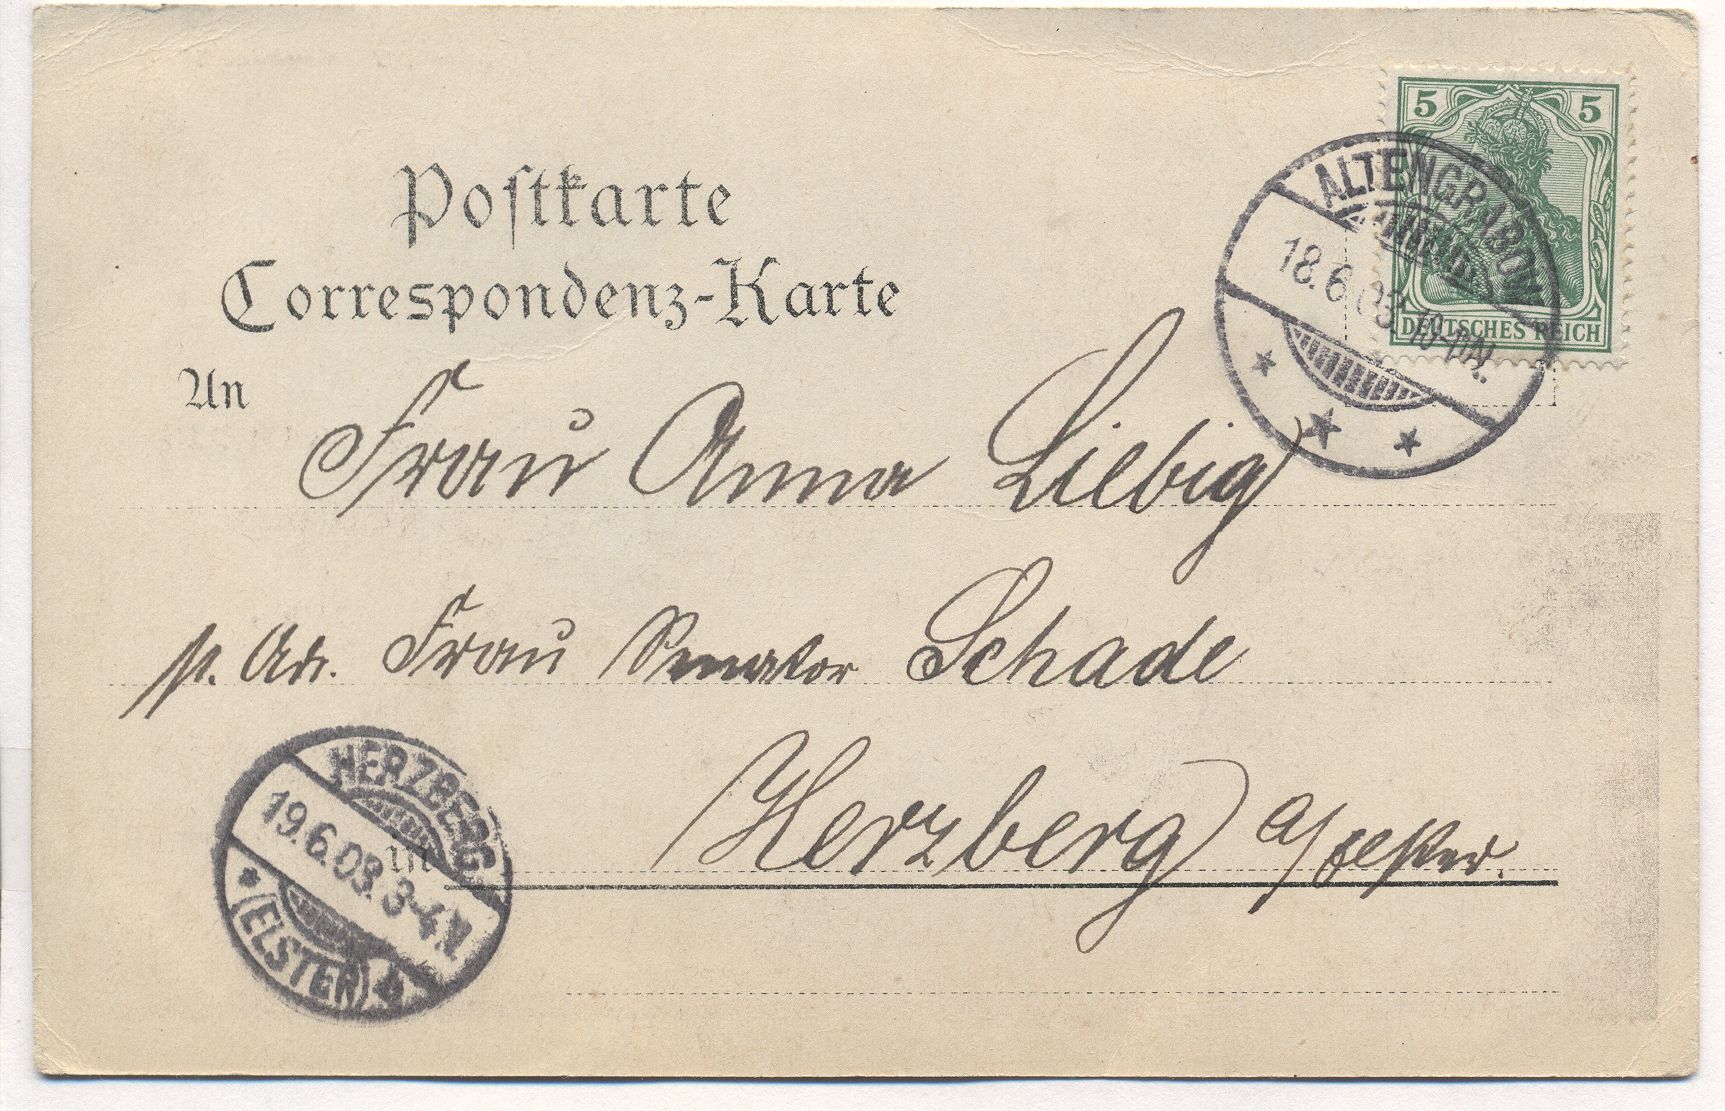 5 5
DEUTSCHES REICH
ALTENGRABOW
18.6.03. 10-11N.
Postkarte
Correspondenz-Karte
An
Frau Anna Liebig
p. Adr. Frau Senator Schade
in
Herzberg a/Elster.
HERZBERG
19.6.03. 3-4N.
(ELSTER) b